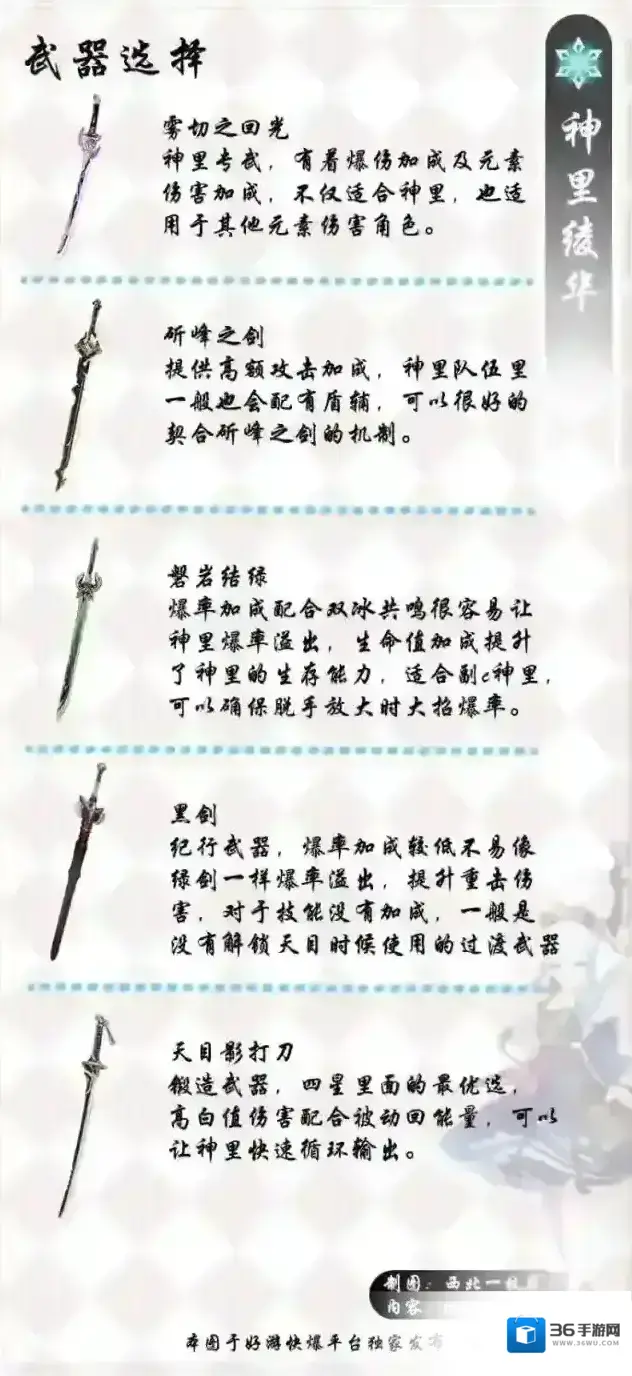 武器选择
神里绫华
雾切之回光
神里专武，有着爆伤加成及元素
伤害加成，不仅适合神里，也适
用于其他元素伤害角色。
斫峰之剑
提供高额攻击加成，神里队伍里
一般也会配有盾辅，可以很好的
契合斫峰之剑的机制。
磐岩结绿
爆率加成配合双冰共鸣很容易让
神里爆率溢出，生命值加成提升
了神里的生存能力，适合副c神里，
可以确保脱手放大时大招爆率。
黑剑
纪行武器，爆率加成较低不易像
绿剑一样爆率溢出，提升重击伤
害，对于技能没有加成，一般是
没有解锁天目时候使用的过渡武器
天目影打刀
锻造武器，四星里面的最优选，
高白值伤害配合被动回能量，可以
让神里快速循环输出。
制图：西北一
内容
本图于好游快爆平台独家发布
36手游网
WWW.36WU.COM